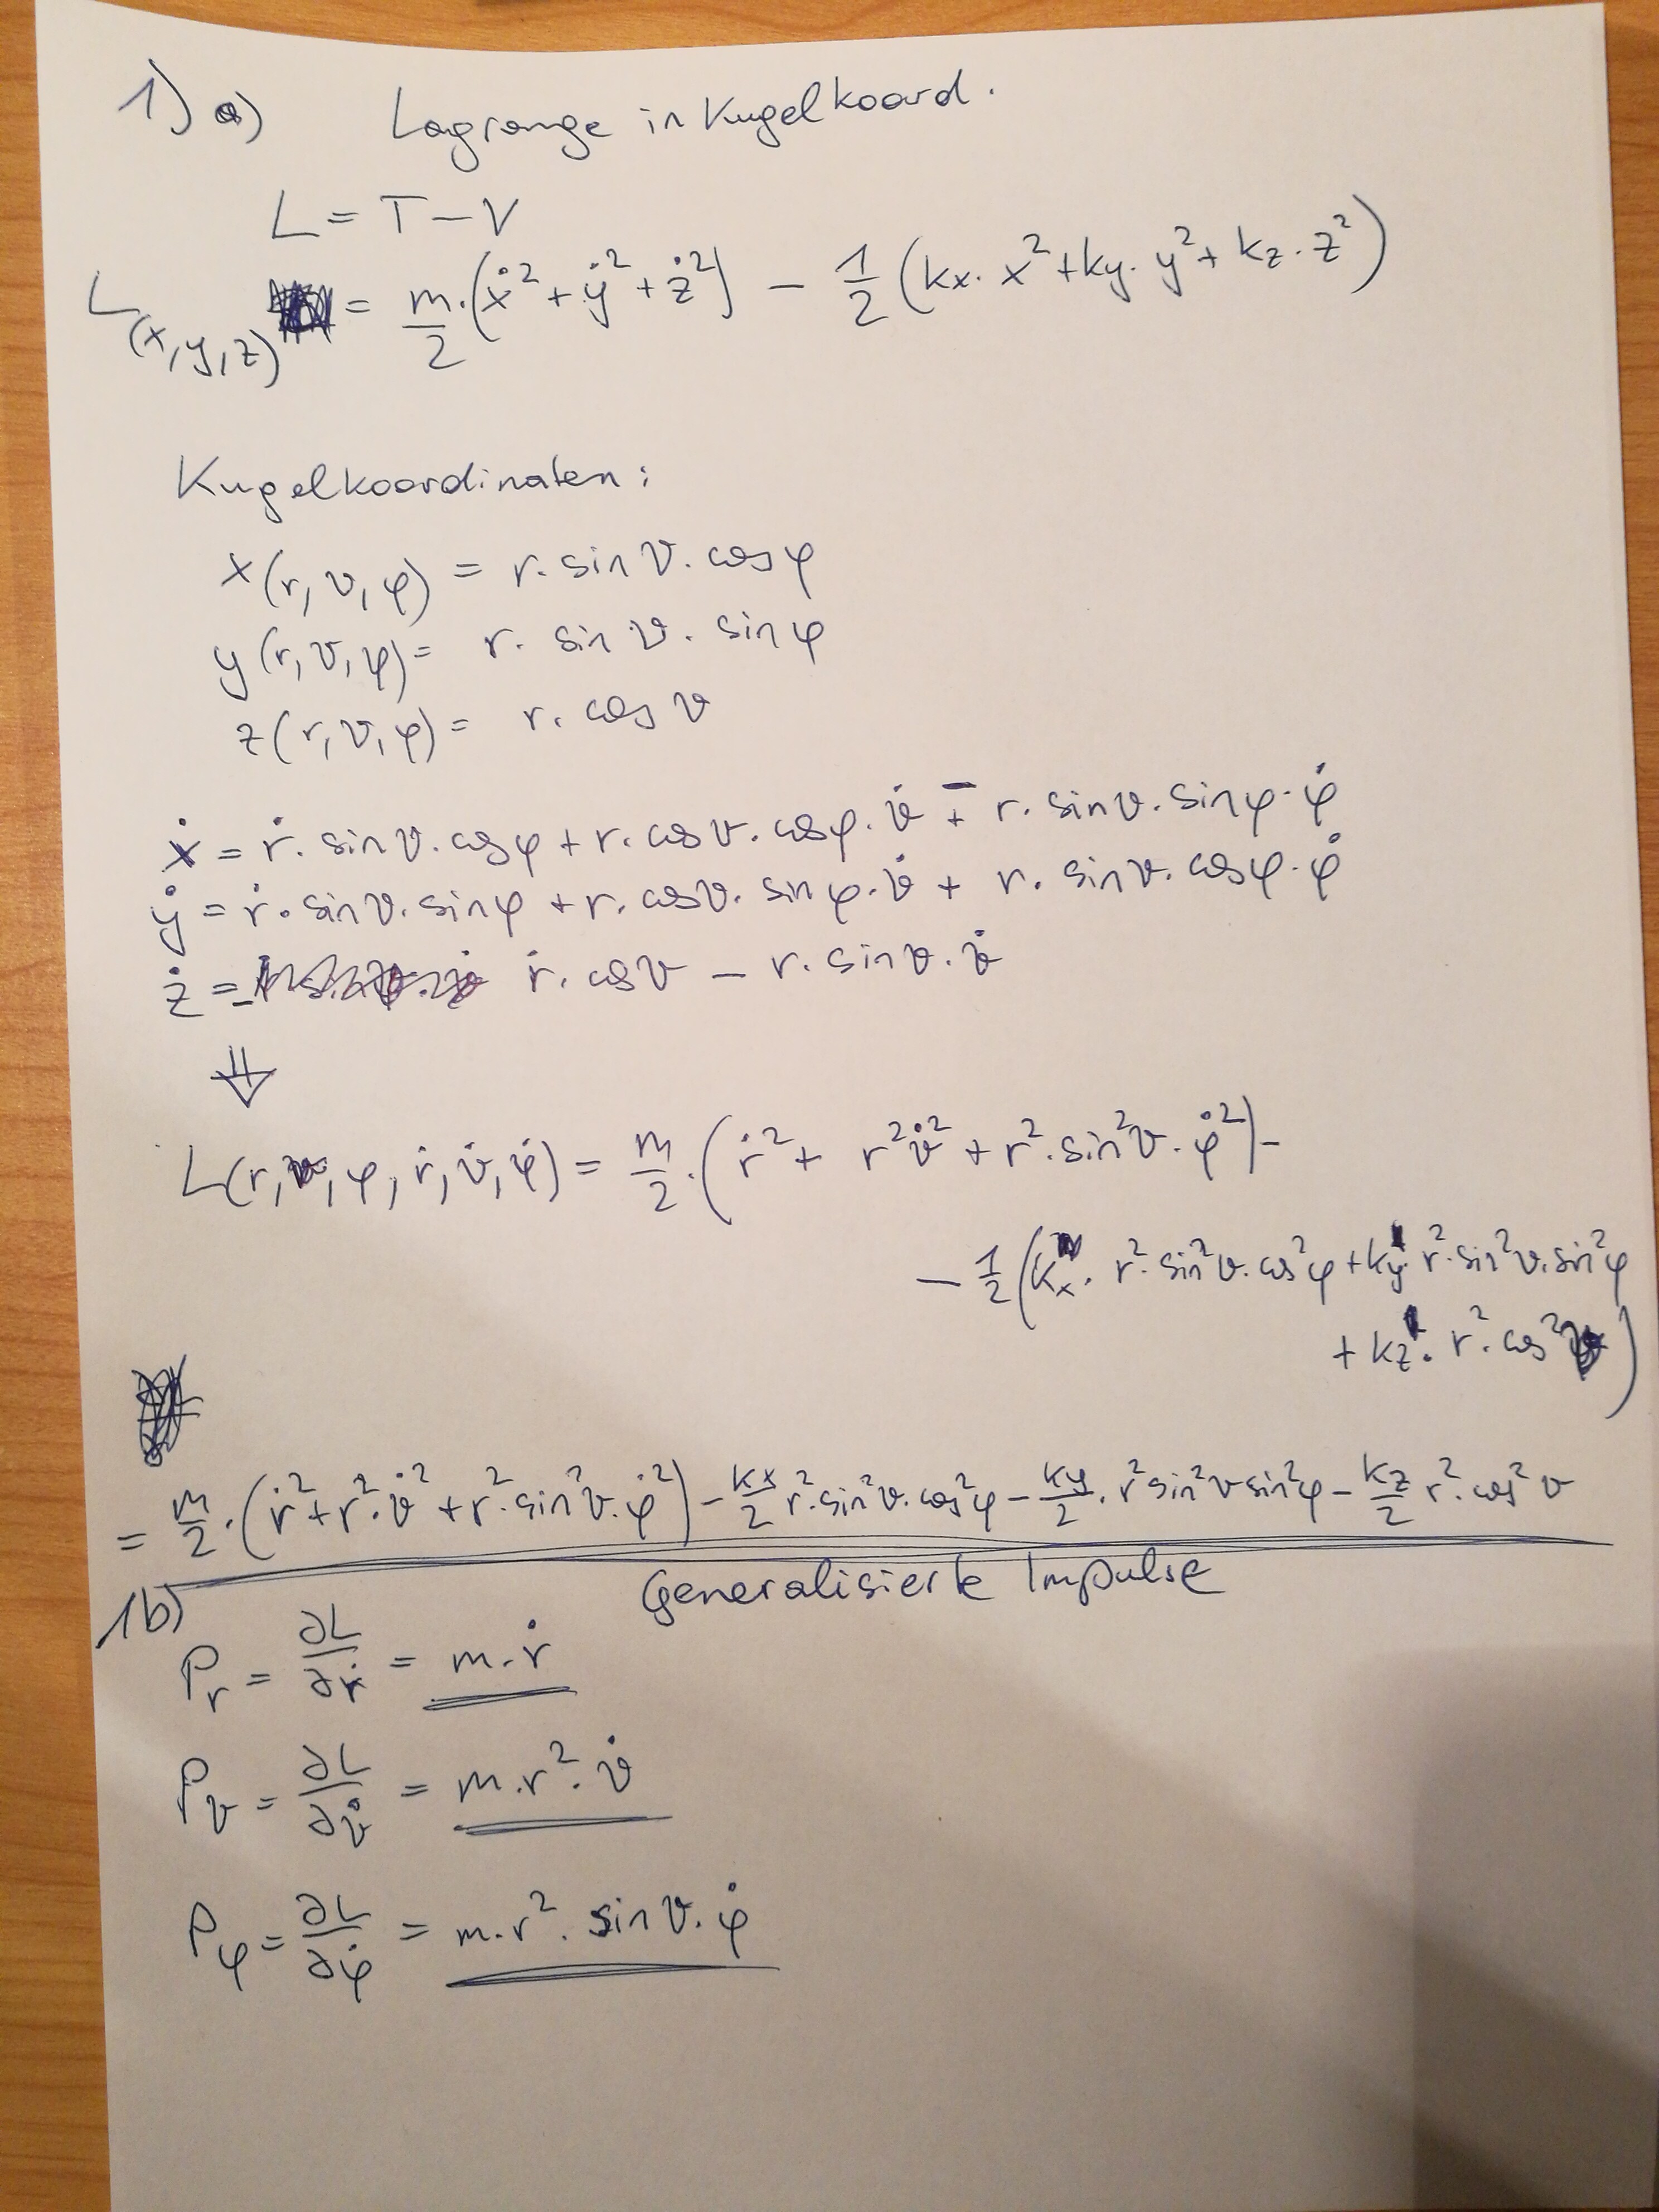 1) a) Lagrange in Kugelkoord.
L = T − V
L(x,y,z) = m/2 · (ẋ² + ẏ² + ż²) − 1/2 (kx · x² + ky · y² + kz · z²)
Kugelkoordinaten:
x(r, ϑ, φ) = r · sin ϑ · cos φ
y(r, ϑ, φ) = r · sin ϑ · sin φ
z(r, ϑ, φ) = r · cos ϑ
ẋ = ṙ · sin ϑ · cos φ + r · cos ϑ · cos φ · ϑ̇ − r · sin ϑ · sin φ · φ̇
ẏ = ṙ · sin ϑ · sin φ + r · cos ϑ · sin φ · ϑ̇ + r · sin ϑ · cos φ · φ̇
ż = ṙ · cos ϑ − r · sin ϑ · ϑ̇
⇓
L(r, ϑ, φ, ṙ, ϑ̇, φ̇) = m/2 · (ṙ² + r² ϑ̇² + r² · sin² ϑ · φ̇²) −
− 1/2 (kx · r² · sin² ϑ · cos² φ + ky · r² · sin² ϑ · sin² φ
+ kz · r² · cos² ϑ)
= m/2 · (ṙ² + r² · ϑ̇² + r² · sin² ϑ · φ̇²) − kx/2 r² · sin² ϑ · cos² φ − ky/2 · r² sin² ϑ sin² φ − kz/2 r² · cos² ϑ
1b) Generalisierte Impulse
Pr = ∂L/∂ṙ = m · ṙ
Pϑ = ∂L/∂ϑ̇ = m · r² · ϑ̇
Pφ = ∂L/∂φ̇ = m · r² · sin ϑ · φ̇